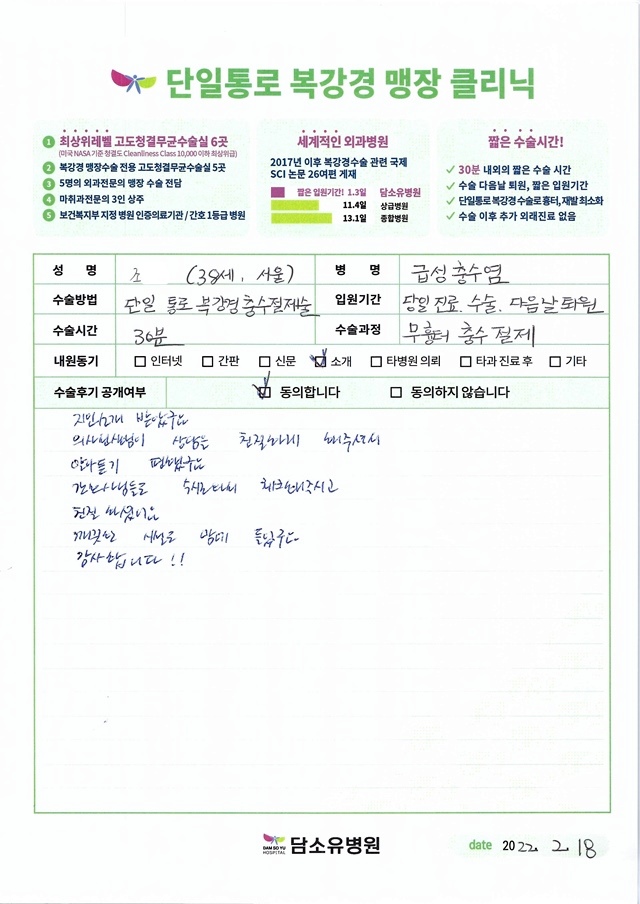 단일통로 복강경 맹장 클리닉
1 최상위레벨 고도청결무균수술실 6곳
(미국 NASA 기준 청결도 Cleanliness Class 10,000 이하 최상위급)
2 복강경 맹장수술 전용 고도청결무균수술실 5곳
3 5명의 외과전문의 맹장 수술 전담
4 마취과전문의 3인 상주
5 보건복지부 지정 병원 인증의료기관 / 간호 1등급 병원
세계적인 외과병원
2017년 이후 복강경수술 관련 국제
SCI 논문 26여편 게재
짧은 입원기간! 1.3일 담소유병원
11.4일 상급병원
13.1일 종합병원
짧은 수술시간!
30분 내외의 짧은 수술 시간
수술 다음날 퇴원, 짧은 입원기간
단일통로 복강경 수술로 흉터, 재발 최소화
수술 이후 추가 외래진료 없음
성 명 조 (38세, 서울) 병 명 급성 충수염
수술방법 단일 통로 복강경 충수절제술 입원기간 당일 진료. 수술. 다음날 퇴원
수술시간 30분 수술과정 무흉터 충수 절제
내원동기 인터넷 간판 신문 소개 타병원 의뢰 타과 진료 후 기타
수술후기 공개여부 동의합니다 동의하지 않습니다
지인소개 받았구요
의사선생님이 상담을 친절하게 해주셔서
알아듣기 편했구요
간호사님들도 수시로 체크해주시고
친절 하셨어요
깨끗한 시설도 맘에 들었구요
감사합니다!!
DAM SO YU
HOSPITAL
담소유병원
date 2022. 2. 18